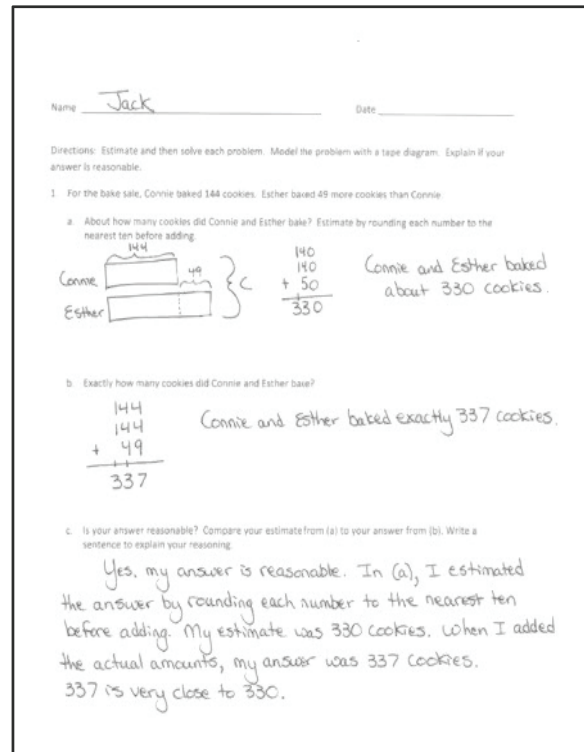 Name Jack Date
Directions: Estimate and then solve each problem. Model the problem with a tape diagram. Explain if your
answer is reasonable.
1. For the bake sale, Connie baked 144 cookies. Esther baked 49 more cookies than Connie.
a. About how many cookies did Connie and Esther bake? Estimate by rounding each number to the
nearest ten before adding.
144
Connie
49
Esther
C
140
140
+ 50
330
Connie and Esther baked
about 330 cookies.
b. Exactly how many cookies did Connie and Esther bake?
144
144
+ 49
337
Connie and Esther baked exactly 337 cookies.
c. Is your answer reasonable? Compare your estimate from (a) to your answer from (b). Write a
sentence to explain your reasoning.
Yes, my answer is reasonable. In (a), I estimated
the answer by rounding each number to the nearest ten
before adding. My estimate was 330 cookies. When I added
the actual amounts, my answer was 337 cookies.
337 is very close to 330.